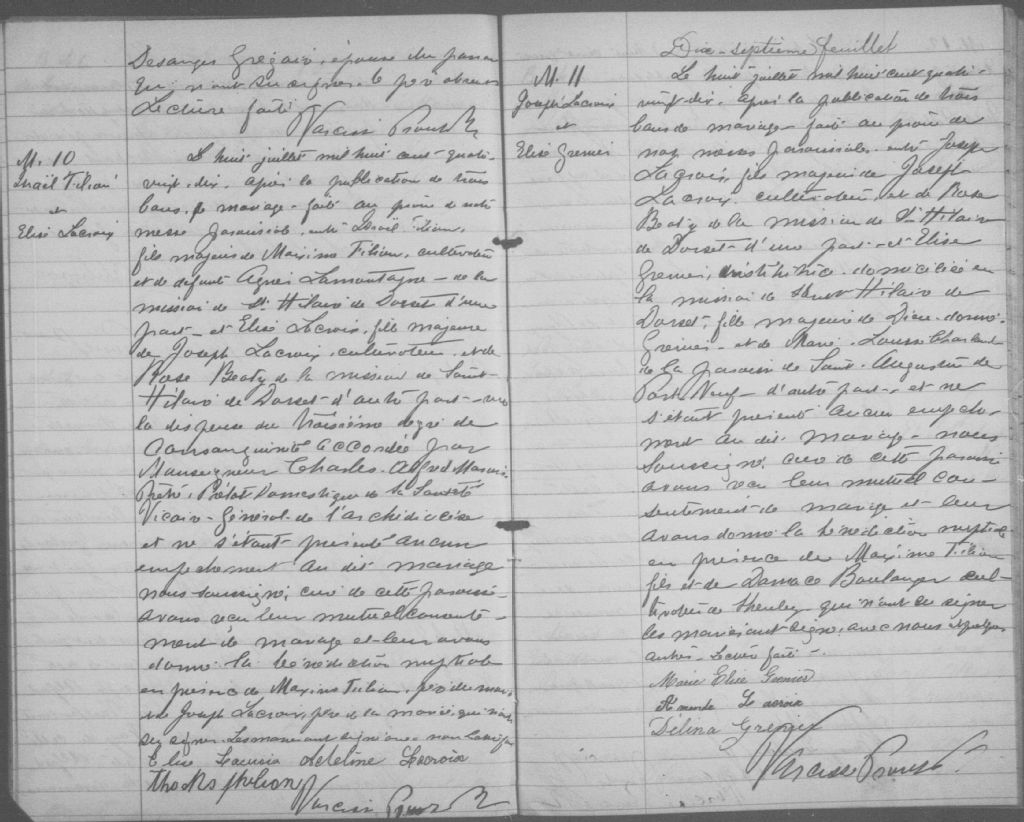 Desanges Grégoire, épouse du parrain
qui n'ont su signer. le père absent
Lecture faite
Narcisse Proulx Ptr
M. 10
Israël Filion
et
Elise Lacroix
Le huit juillet mil huit cent quatre-
vingt-dix, après la publication de trois
bans de mariage faite au prône de notre
messe paroissiale, entre Israël Filion,
fils majeur de Maxime Filion, cultivateur
et de défunte Agnes Lamontagne - de la
mission de St Hilaire de Dorset d'une
part - et Elise Lacroix, fille majeure
de Joseph Lacroix, cultivateur, et de
Rose Beaty de la mission de Saint-
Hilaire de Dorset - d'autre part - vu
la dispense du troisième degré de
consanguinité accordée par
Monseigneur Charles-Alfred Marois
Prêtre, Prélat Domestique de Sa Sainteté
Vicaire-Général de l'archidiocèse
et ne s'étant présenté aucun
empêchement au dit mariage
nous soussigné, curé de cette paroisse
avons reçu leur mutuel consente-
ment de mariage et leur avons
donné la bénédiction nuptiale
en présence de Maxime Filion, père du marié,
de Joseph Lacroix, père de la mariée, qui n'ont
su signer. Les mariés ont signé avec nous Lecture faite
Elise Lacroix Adeline Lacroix
Narcisse Proulx Ptr
Dix-septième feuillet
M. 11
Joseph Lacroix
et
Elise Grenier
Le huit juillet mil huit cent quatre-
vingt-dix, après la publication de trois
bans de mariage faite au prône de
nos messes paroissiales entre Joseph
Lacroix, fils majeur de Joseph
Lacroix, cultivateur, et de Rose
Beaty de la mission de St Hilaire
de Dorset - d'une part - et Elise
Grenier, institutrice, domiciliée en
la mission de Saint Hilaire de
Dorset, fille majeure de Dieu-donné
Grenier - et de Marie-Louise
de la paroisse de Saint-Augustin de
Port Neuf - d'autre part - et ne
s'étant présenté aucun empêche-
ment au dit mariage - nous
soussigné, curé de cette paroisse
avons reçu leur mutuel con-
sentement de mariage et leur
avons donné la bénédiction nuptiale
en présence de Maxime Filion
fils et de Damase Boulanger cul-
tivateur de Shenley qui n'ont su signer
les mariés ont signé avec nous et quelques
autres - Lecture faite -
Marie Elise Grenier
Amanda Lacroix
Délina Grenier
Narcisse Proulx Ptr